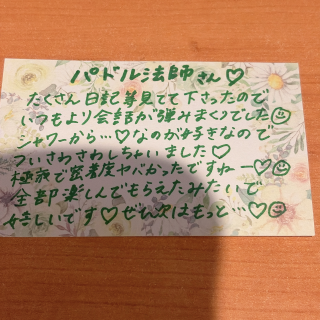 パドル法師さん♡
たくさん日記等見てて下さったので
いつもより会話が弾みまくりでした☺
シャワーから…♡なのが好きなので
ついさわさわしちゃいました♡
極液で密着度ヤバかったですねー♡☺
全部楽しんでもらえたみたいで
嬉しいです♡ぜひ次はもっと…♡☺